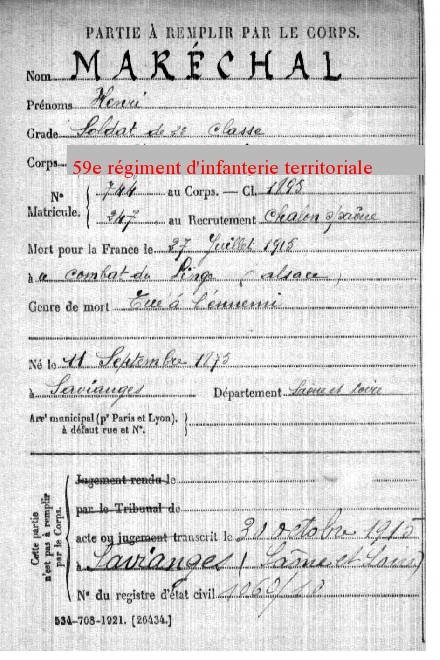 PARTIE À REMPLIR PAR LE CORPS.
Nom MARÉCHAL
Prénoms Henri
Grade Soldat de 2e classe
Corps 59e régiment d'infanterie territoriale
N° Matricule. 744 au Corps. — Cl. 1895
247 au Recrutement Chalon s/Saône
Mort pour la France le 27 Juillet 1915
à combat du Linge (alsace)
Genre de mort Tué à l'ennemi
Né le 11 Septembre 1875
à Savianges Département Saône et Loire
Arrt municipal (pr Paris et Lyon),
à défaut rue et N°.
Cette partie n'est pas à remplir par le Corps.
Jugement rendu le
par le Tribunal de
acte ou jugement transcrit le 30 octobre 1915
à Savianges (Saône et Loire)
N° du registre d'état civil 1060/10
534-708-1921. [26434.]